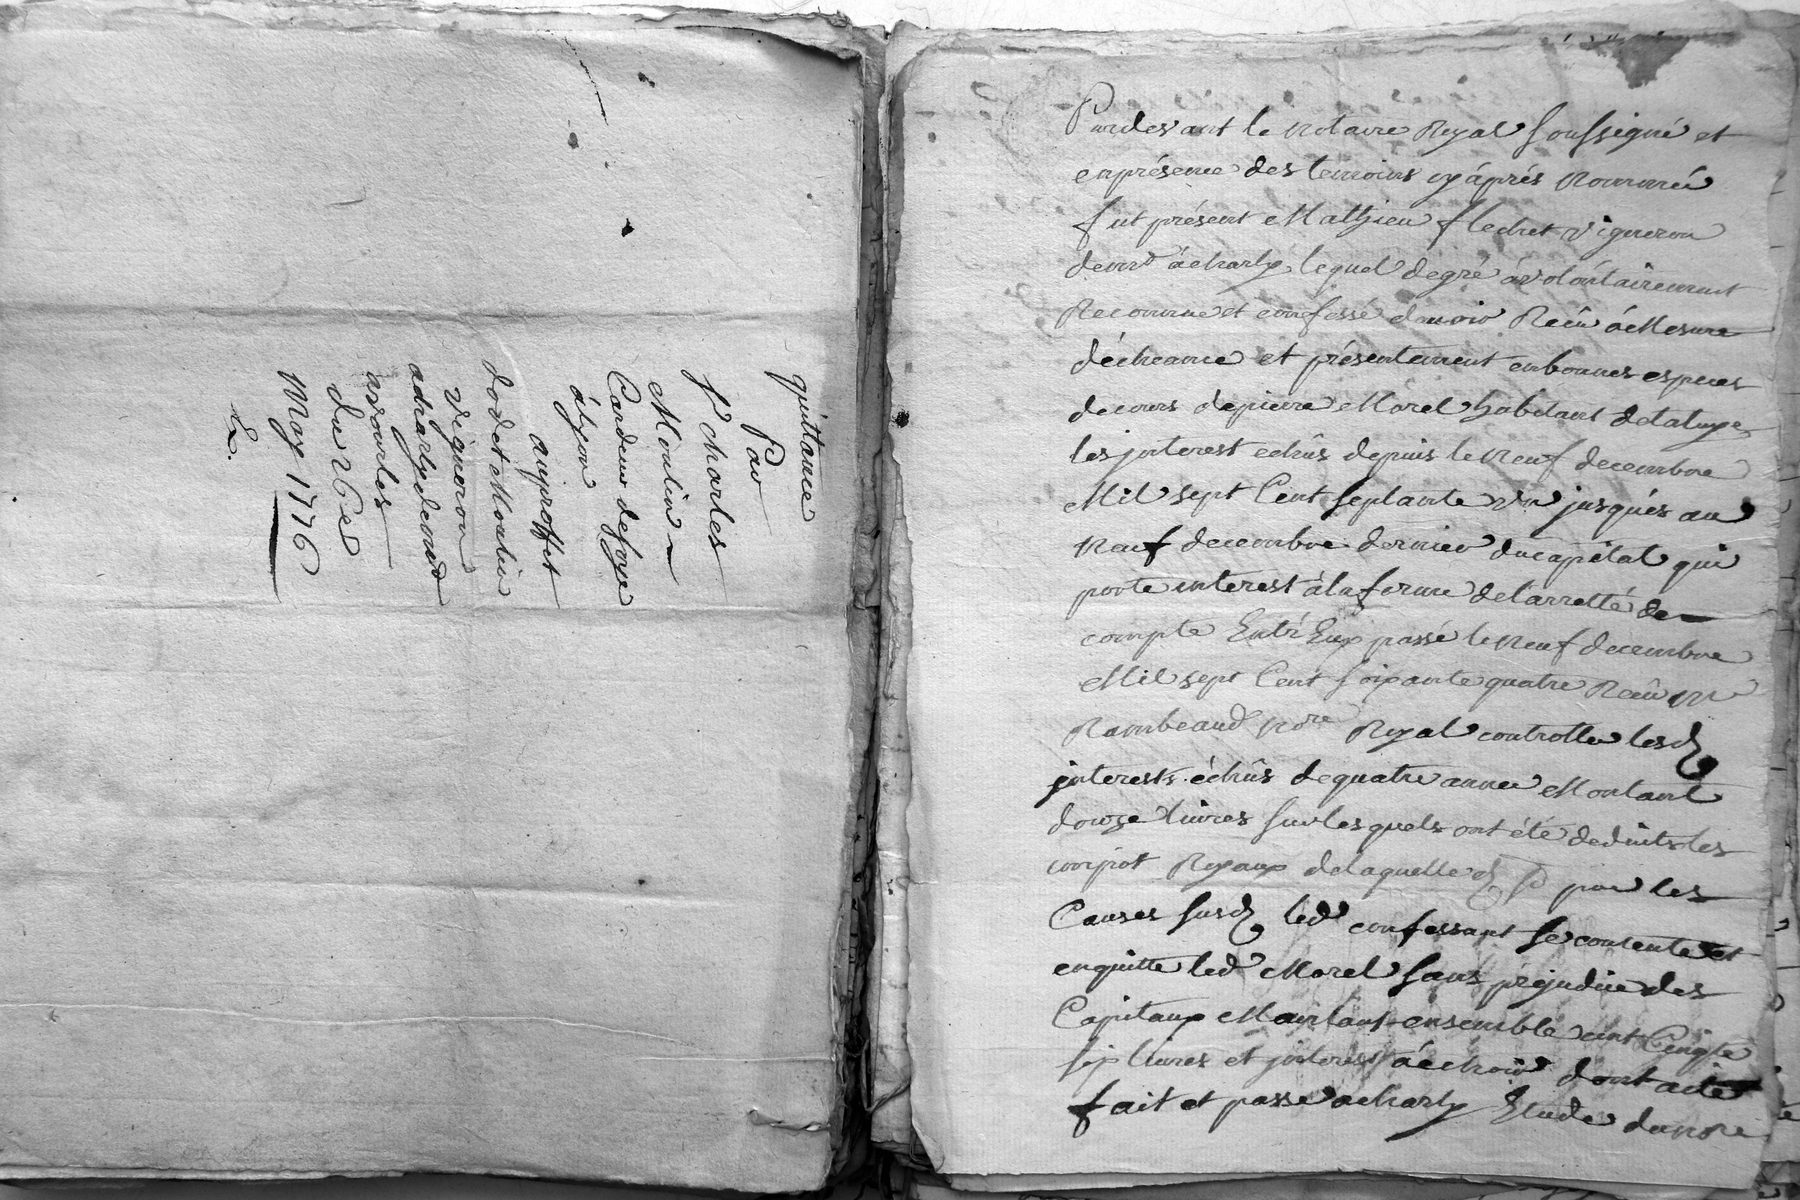 quittance
Par
Sr charles
Moulin
Cardeur de soye
á lyon
au proffit
dodet Moulin
Vigneron
a charly demt
du 26e
May 1776
&.
Pardevant le notaire Royal soussigné et
en présence des temoins cy áprés Nommé
fut présent Mathieu flechet vigneron
demt á charly, lequel de gré á volontairement
Reconnue et confessé davoir Reçû á Mesure
décheance et présentement en bonnes especes
de cours de pierre Morel habitant de
les jnterest echûs depuis le Neuf decembre
Mil sept Cent septante un jusqués au
Neuf decembre dernier du capital qui
porte interest á la forme de larretté de
compte Entre Eux passé le Neuf decembre
Mil sept Cent soixante quatre Reçû Me
Rambeaud Nore Royal controllé lesd
jnterests échûs de quatre année Montant
douze livres sur les quels ont été deduits les
jmpot Royaux de laquelle d. pour les
Causes susd led confessant se contente et
en quitte led Morel sans préjudice des
Capitaux Montant ensemble cent Cinqte
six livres et jnterest á échoir dont acte
fait et passé a charly Etude du nore